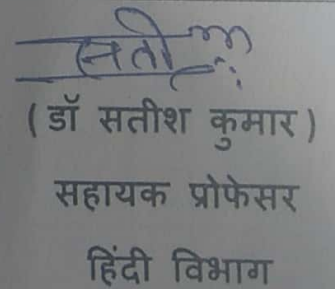 सती
(डॉ सतीश कुमार)
सहायक प्रोफेसर
हिंदी विभाग